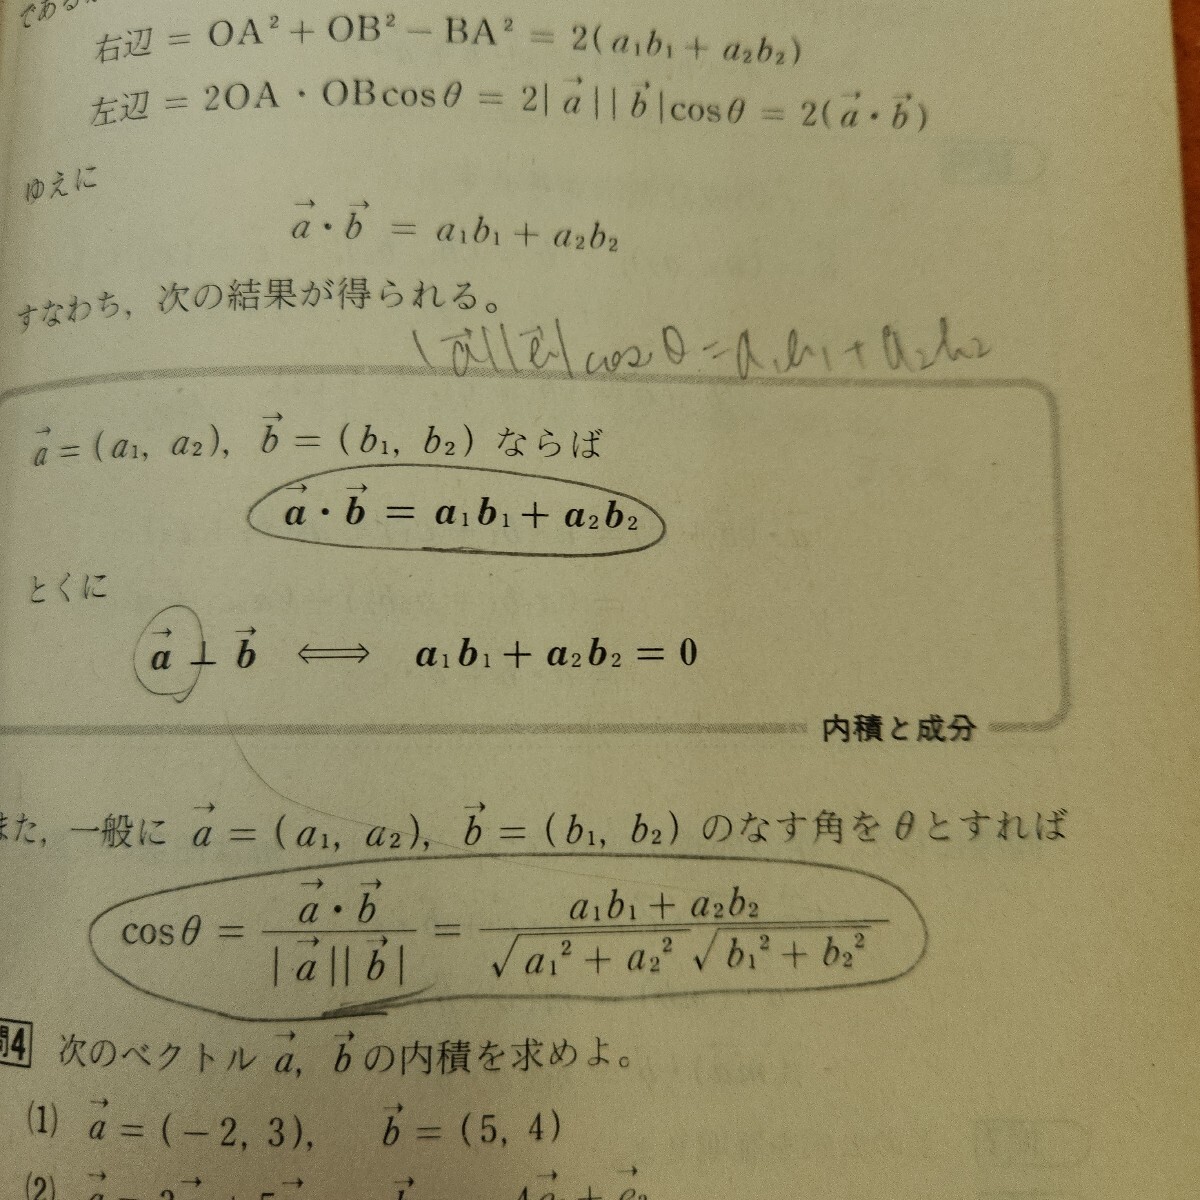 右辺 = OA² + OB² − BA² = 2(a₁b₁ + a₂b₂)
左辺 = 2OA・OBcosθ = 2|a⃗||b⃗|cosθ = 2(a⃗・b⃗)
ゆえに
a⃗・b⃗ = a₁b₁ + a₂b₂
すなわち，次の結果が得られる。
|a⃗||b⃗|cosθ = a₁b₁ + a₂b₂
a⃗ = (a₁, a₂), b⃗ = (b₁, b₂) ならば
a⃗・b⃗ = a₁b₁ + a₂b₂
とくに
a⃗ ⊥ b⃗ ⟺ a₁b₁ + a₂b₂ = 0
内積と成分
また，一般に a⃗ = (a₁, a₂), b⃗ = (b₁, b₂) のなす角をθとすれば
cosθ = a⃗・b⃗ / |a⃗||b⃗| = a₁b₁ + a₂b₂ / √(a₁² + a₂²) √(b₁² + b₂²)
問4 次のベクトル a⃗, b⃗ の内積を求めよ。
(1) a⃗ = (−2, 3), b⃗ = (5, 4)
(2)